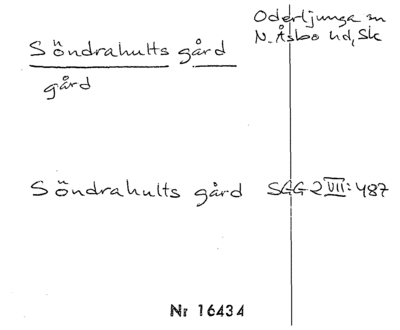 Oderljunga sn
N. Åsbo hd, Sk
Söndrahults gård
gård
Söndrahults gård SGG 2 VII: 487
Nr 16434